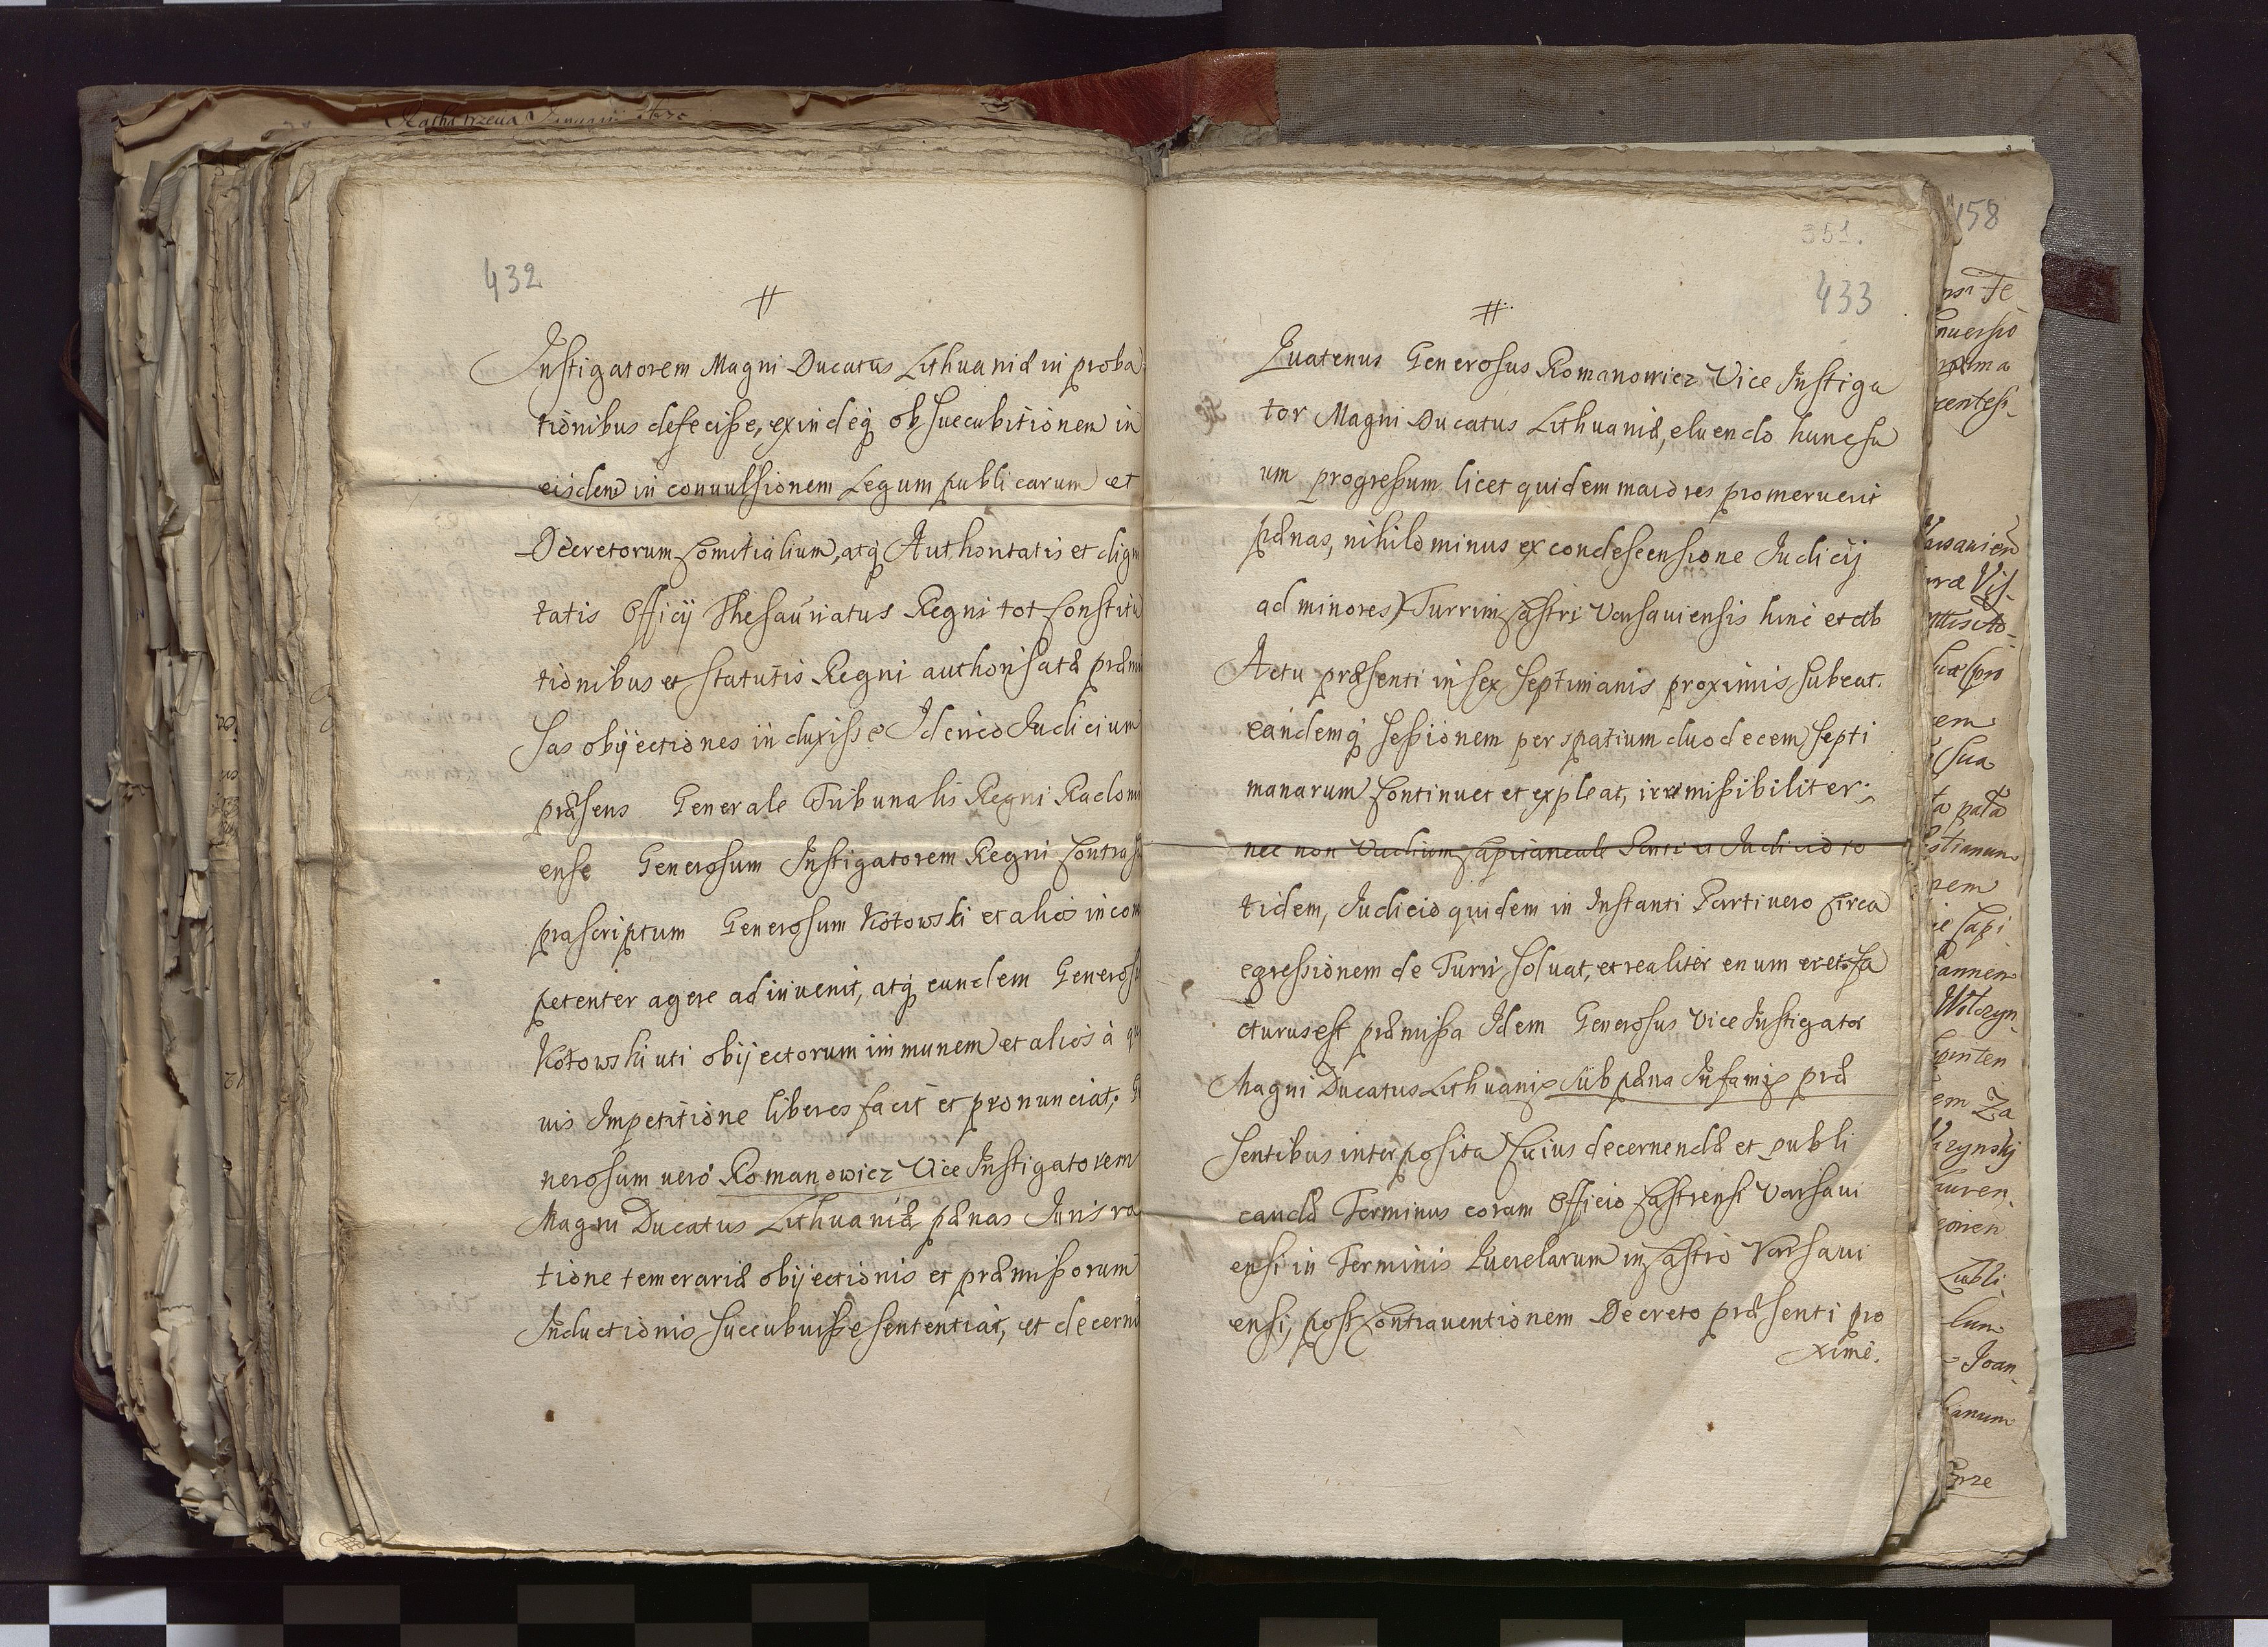 432
Instigatorem Magni Ducatus Lithuaniæ in proba
tionibus defecisse, exindeq ob succubitionem in
eisdem in convulsionem Legum publicarum et
Decretorum Comitialium, atq Authoritatis et dign
tatis Officij Thesauriatus Regni tot Constitu
tionibus et statutis Regni authorisatæ præmi
sas obijectiones induxisse Idcirco Judicium
præsens Generale Tribunalis Regni Radomi
ense Generosum Instigatorem Regni Contra
præscriptum Generosum Kotowski et alios incom
petenter agere adinvenit, atq eundem Generos
Kotowski uti obijectorum immunem et alios à qu
vis Impetitione liberos facit et pronunciat; G
nerosum verò Romanowicz Vice Instigatorem
Magni Ducatus Lithuaniæ pænas Juris ra
tione temerariæ obijectionis et præmissorum
Inductionis succubuisse sententiat, et decerni
351.
433
Quatenus Generosus Romanowicz Vice Instiga
tor Magni Ducatus Lithuaniæ, eluendo hunc su
um progressum licet quidem maiores promeruerit
pænas, nihilominus ex condescensione Judicij
ad minores, Turrim Castri Varsaviensis hinc et ab
Actu præsenti in sex septimanis proximis subeat.
eandemq sessionem per spatium duodecem septi
manarum Continuet et expleat, irremissibiliter;
nec non Vadium Capitaneale Parti et Judicio to
tidem, Judicio quidem in Instanti Parti vero Circa
egressionem de Turri soluat, et realiter enumeret. Fa
cturus est præmissa Idem Generosus Vice Instigator
Magni Ducatus Lithuaniæ sub pæna Infamiæ præ
sentibus interposita Cuius decernendæ et publi
candæ Terminus coram Officio Castrensi Varsavi
ensi in Terminis Querelarum in Castro Varsavi
ensi, post Contraventionem Decreto præsenti pro
ximè.
158